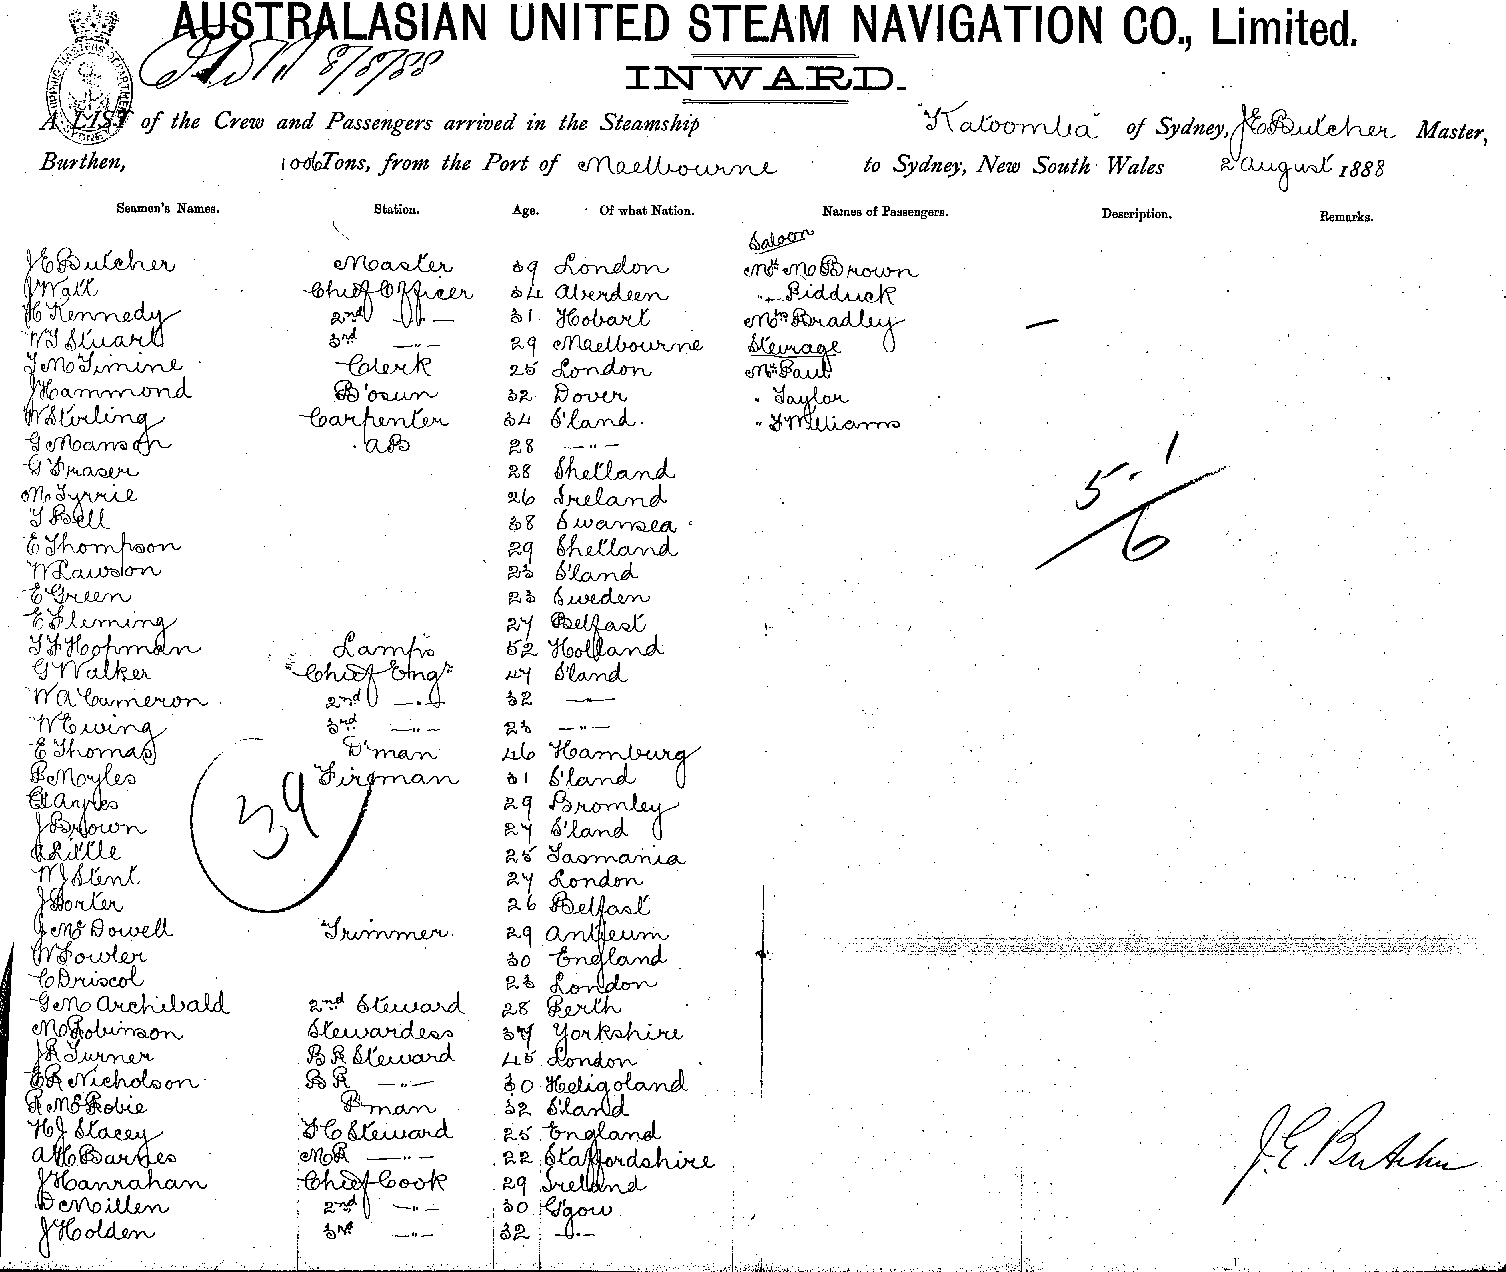 AUSTRALASIAN UNITED STEAM NAVIGATION CO., Limited.
8/8/88
INWARD.
A LIST of the Crew and Passengers arrived in the Steamship "Katoomba" of Sydney, J E Butcher Master,
Burthen, 1006 Tons, from the Port of Maelbourne to Sydney, New South Wales 2 august 1888
Seamen's Names. Station. Age. Of what Nation. Names of Passengers. Description. Remarks.
Saloon
J E Butcher Master 39 London Mr M Brown
J Watt Chief Officer 34 Aberdeen " Pidduck
H Kennedy 2nd -"- 31 Hobart Mrs Bradley —
W T Stuart 3rd -"- 29 Maelbourne Steurage
T McTimine Clerk 25 London Mr Paul
J Hammond B'osun 32 Dover " Taylor
W Stirling Carpenter 34 S'land. " T Williams
G Manson AB 28 -"-
G Fraser 28 Shetland
M Tyrrie 26 Ireland
T Bell 38 Swansea
E Thompson 29 Shetland
W Lawson 23 S'land
E Green 23 Sweden
E Fleming 27 Belfast
T F Hopman Lamps 52 Holland
G Walker Chief Engr 47 S'land
W A Cameron 2nd -"- 32 -"-
W Ewing 3rd -"- 23 -"-
E Thomas D'man 46 Hamburg
P Moyles Fireman 31 S'land
E Ayres 29 Bromley
J Brown 27 S'land
A Little 25 Tasmania
W J Stent 27 London
J Porter 26 Belfast
J McDowell Trimmer 29 Antreum
W Fowler 30 England
C Driscol 23 London
G M Archibald 2nd Steward 28 Perth
M Robinson Stewardess 37 Yorkshire
J R Turner B R Steward 45 London
E R Nicholson B R -"- 30 Heligoland
R McRobie P'man 32 S'land
H J Stacey F C Steward 25 England
A H Barnes M R -"- 22 Staffordshire
J Hanrahan Chief Cook 29 Ireland
D McMillen 2nd -"- 30 G'gow
J Holden 3rd -"- 32 -"-
39
5.1
6
J. E. Butcher